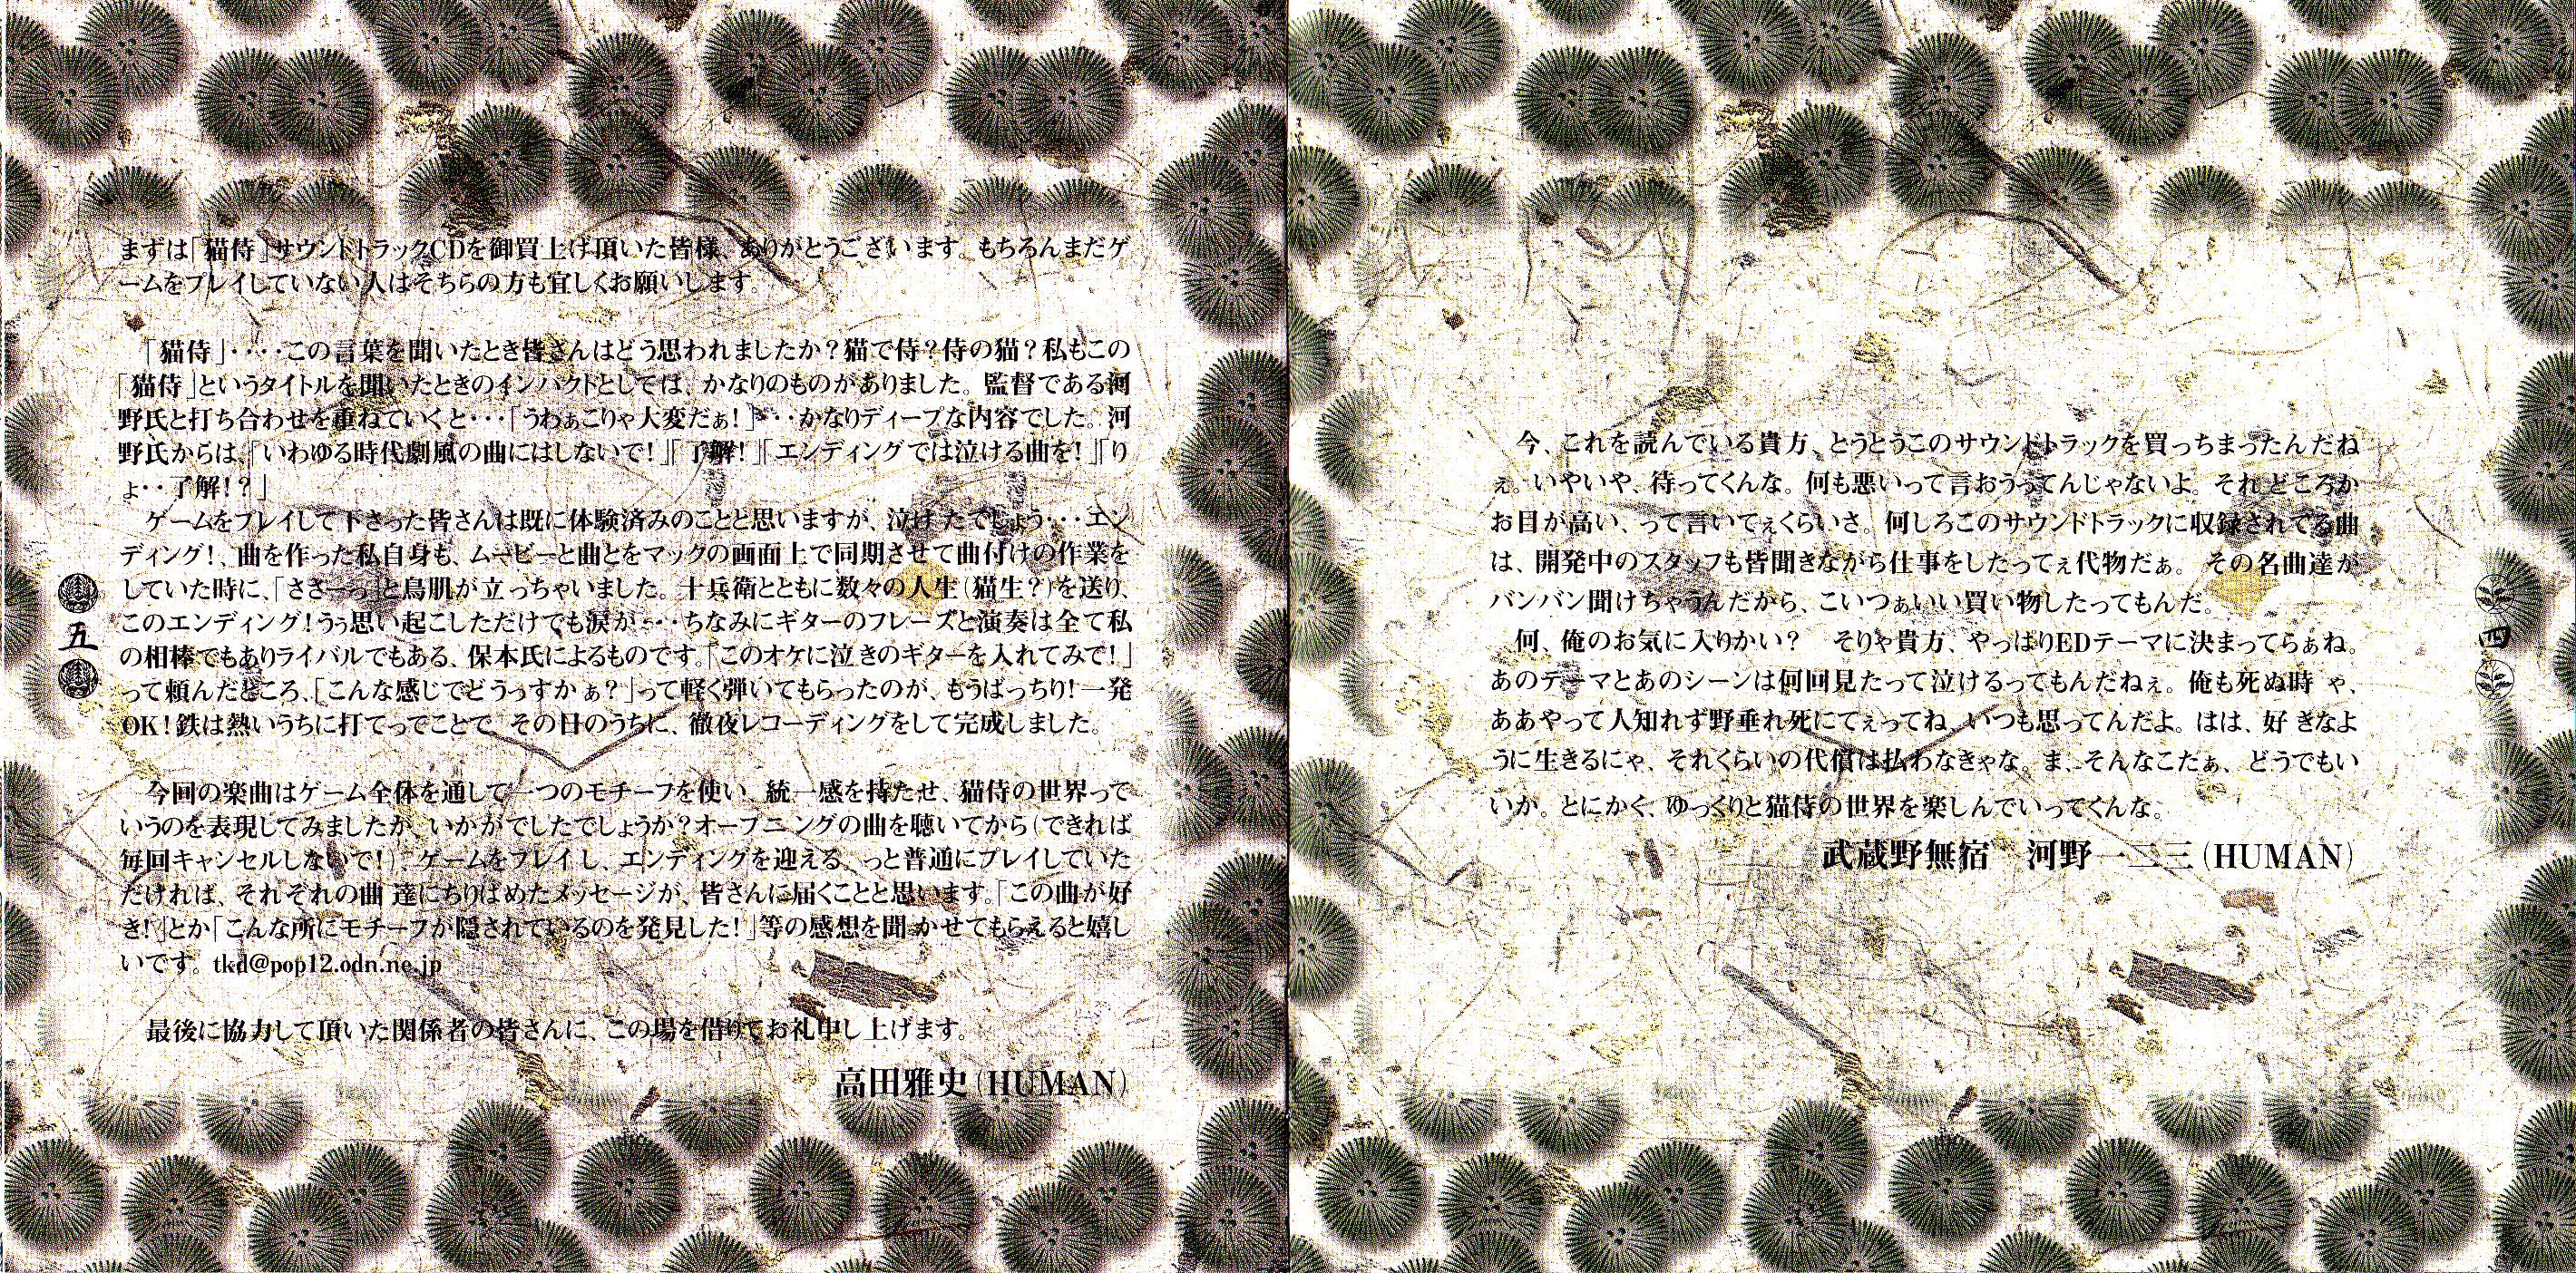 まずは「猫侍」サウンドトラックCDを御買上げ頂いた皆様、ありがとうございます。もちろんまだゲ
ームをプレイしていない人はそちらの方も宜しくお願いします。
「猫侍」‥‥この言葉を聞いたとき皆さんはどう思われましたか?猫で侍?侍の猫?私もこの
「猫侍」というタイトルを聞いたときのインパクトとしては、かなりのものがありました。監督である河
野氏と打ち合わせを重ねていくと・・・「うわぁこりゃ大変だぁ!」・・・かなりディープな内容でした。河
野氏からは、『いわゆる時代劇風の曲にはしないで!』『了解!』『エンディングでは泣ける曲を!』『り
ょ・・了解!?」
ゲームをプレイして下さった皆さんは既に体験済みのことと思いますが、泣けたでしょう・・・エン
ディング!、曲を作った私自身も、ムービーと曲とをマックの画面上で同期させて曲付けの作業を
していた時に、「ささーっ」と鳥肌が立っちゃいました。十兵衛とともに数々の人生(猫生?)を送り、
このエンディング!うぅ思い起こしただけでも涙が・・・ちなみにギターのフレーズと演奏は全て私
の相棒でもありライバルでもある、保本氏によるものです。「このオケに泣きのギターを入れてみて!」
って頼んだところ、「こんな感じでどうっすかぁ?」って軽く弾いてもらったのが、もうばっちり!一発
OK!鉄は熱いうちに打てってことで、その日のうちに、徹夜レコーディングをして完成しました。
今回の楽曲はゲーム全体を通して一つのモチーフを使い、統一感を持たせ、猫侍の世界って
いうのを表現してみましたが、いかがでしたでしょうか?オープニングの曲を聴いてから(できれば
毎回キャンセルしないで!)、ゲームをプレイし、エンディングを迎える、っと普通にプレイしていた
だければ、それぞれの曲達にちりばめたメッセージが、皆さんに届くことと思います。「この曲が好
き!」とか「こんな所にモチーフが隠されているのを発見した!」等の感想を聞かせてもらえると嬉し
いです。tkd@pop12.odn.ne.jp
最後に協力して頂いた関係者の皆さんに、この場を借りてお礼申し上げます。
高田雅史(HUMAN)
五
今、これを読んでいる貴方、とうとうこのサウンドトラックを買っちまったんだね
ぇ。いやいや、待ってくんな。何も悪いって言おうってんじゃないよ。それどころか
お目が高い、って言いてぇくらいさ。何しろこのサウンドトラックに収録されてる曲
は、開発中のスタッフも皆聞きながら仕事をしたってぇ代物だぁ。その名曲達が
バンバン聞けちゃうんだから、こいつぁいい買い物したってもんだ。
何、俺のお気に入りかい? そりゃ貴方、やっぱりEDテーマに決まってらぁね。
あのテーマとあのシーンは何回見たって泣けるってもんだねぇ。俺も死ぬ時ゃ、
ああやって人知れず野垂れ死にてぇってね、いつも思ってんだよ。はは、好きなよ
うに生きるにゃ、それくらいの代償は払わなきゃな。ま、そんなこたぁ、どうでもい
いか。とにかく、ゆっくりと猫侍の世界を楽しんでいってくんな。
武蔵野無宿 河野一二三(HUMAN)
四